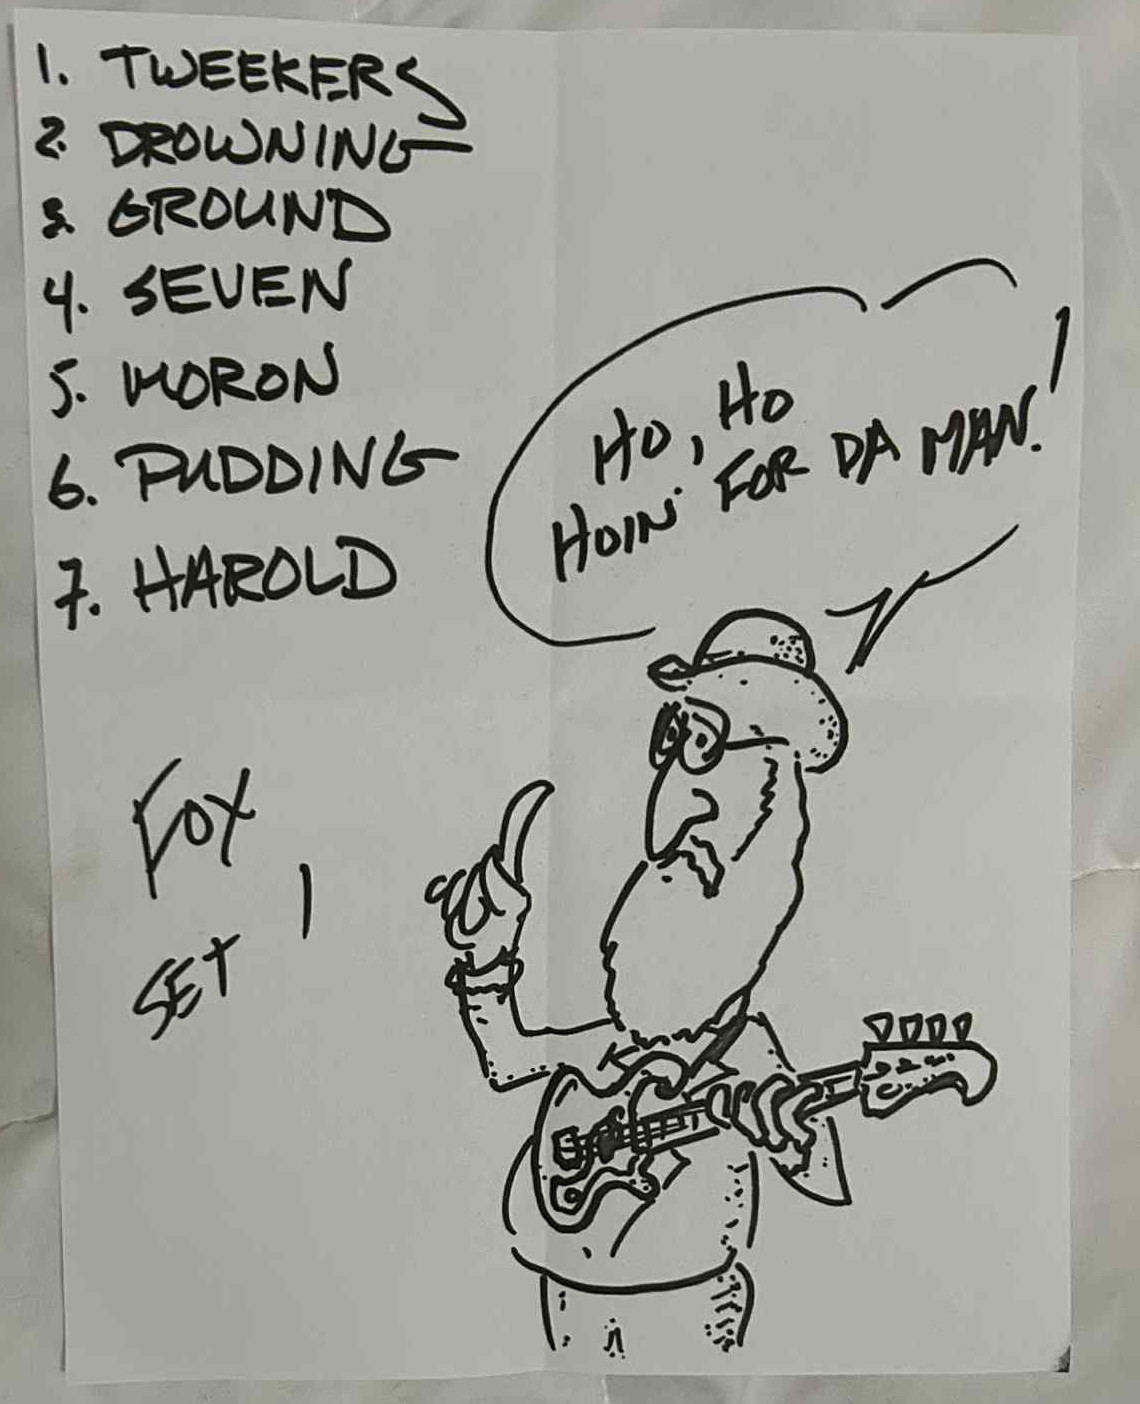 1. TWEEKERS
2. DROWNING
3. GROUND
4. SEVEN
5. MORON
6. PUDDING
7. HAROLD
HO, HO
HOIN' FOR DA MAN!
FOX
SET 1